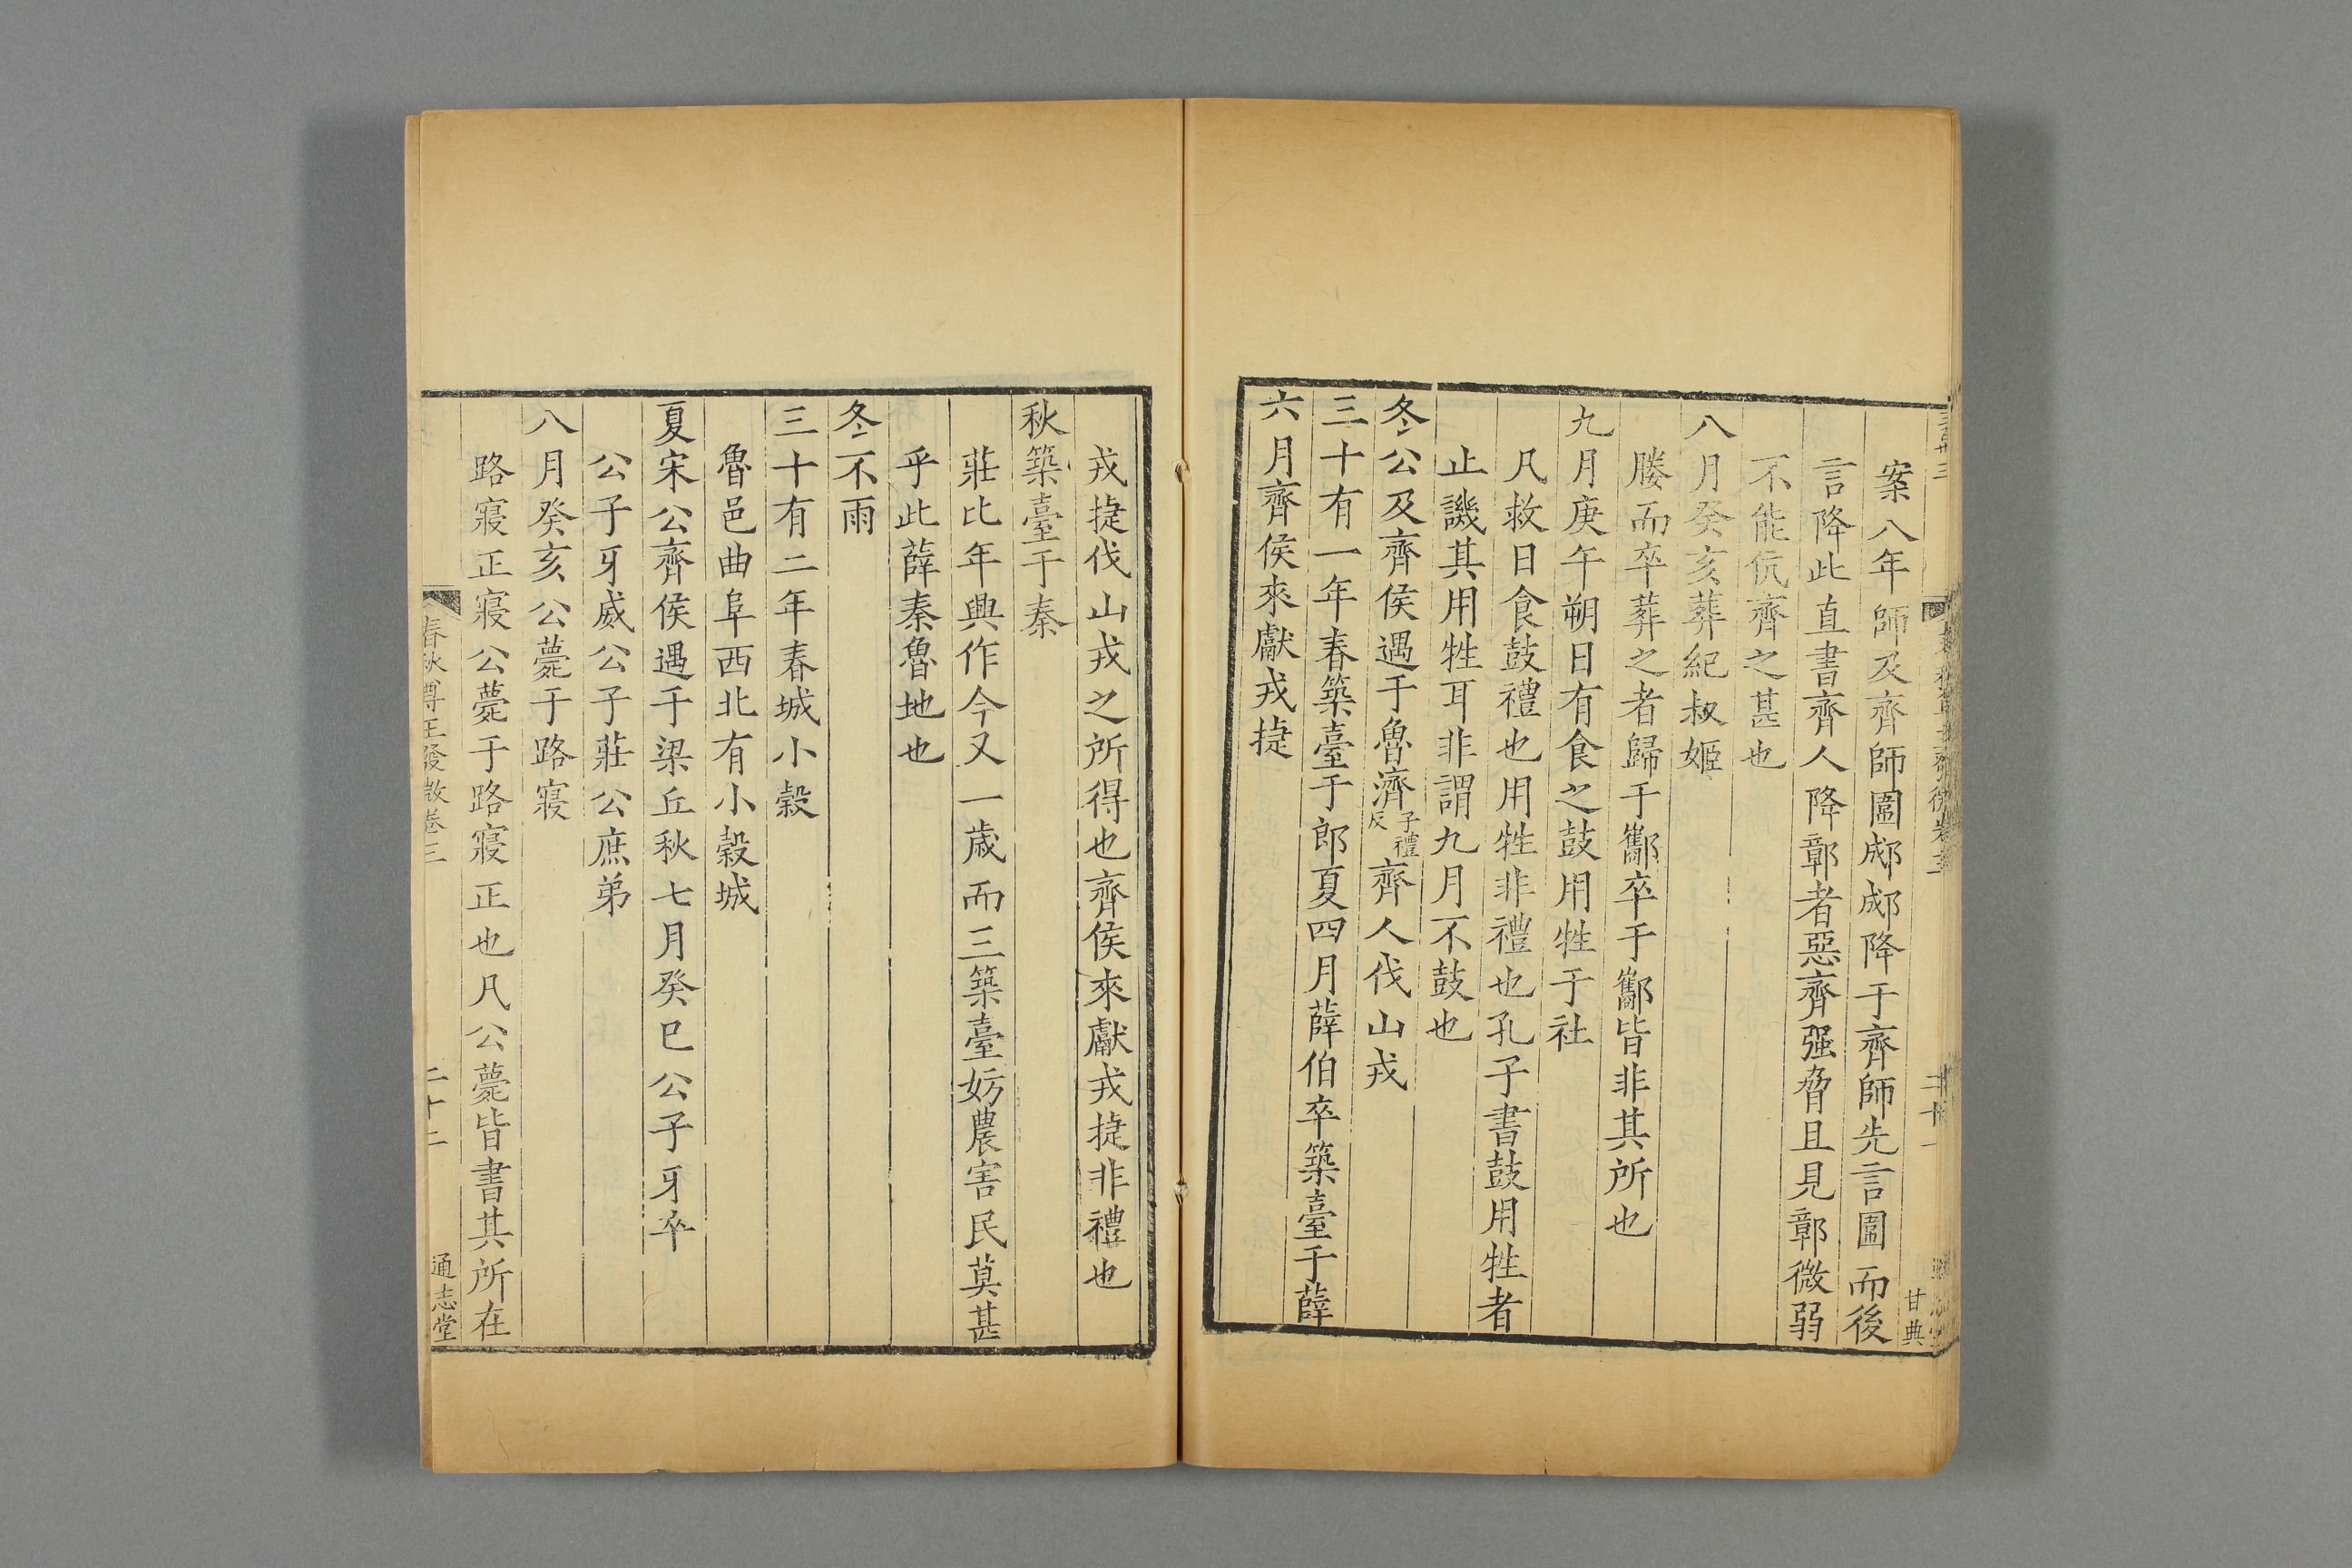 案八年師及齊師圍郕郕降于齊師先言圍而後
言降此直書齊人降鄣者惡齊强脅且見鄣微弱
不能伉齊之甚也
八月癸亥葬紀叔姬
媵而卒葬之者歸于酅卒于酅皆非其所也
九月庚午朔日有食之鼓用牲于社
凡救日食鼓禮也用牲非禮也孔子書鼓用牲者
止譏其用牲耳非謂九月不鼓也
冬公及齊侯遇于魯濟子禮反齊人伐山戎
三十有一年春築臺于郎夏四月薛伯卒築臺于薛
六月齊侯來獻戎捷
二十一
甘典
戎捷伐山戎之所得也齊侯來獻戎捷非禮也
秋築臺于秦
莊比年興作今又一歲而三築臺妨農害民莫甚
乎此薛秦魯地也
冬不雨
三十有二年春城小榖
魯邑曲阜西北有小榖城
夏宋公齊侯遇于梁丘秋七月癸巳公子牙卒
公子牙威公子莊公庶弟
八月癸亥公薨于路寢
路寢正寢公薨于路寢正也凡公薨皆書其所在
春秋尊王發微卷三
二十二
通志堂